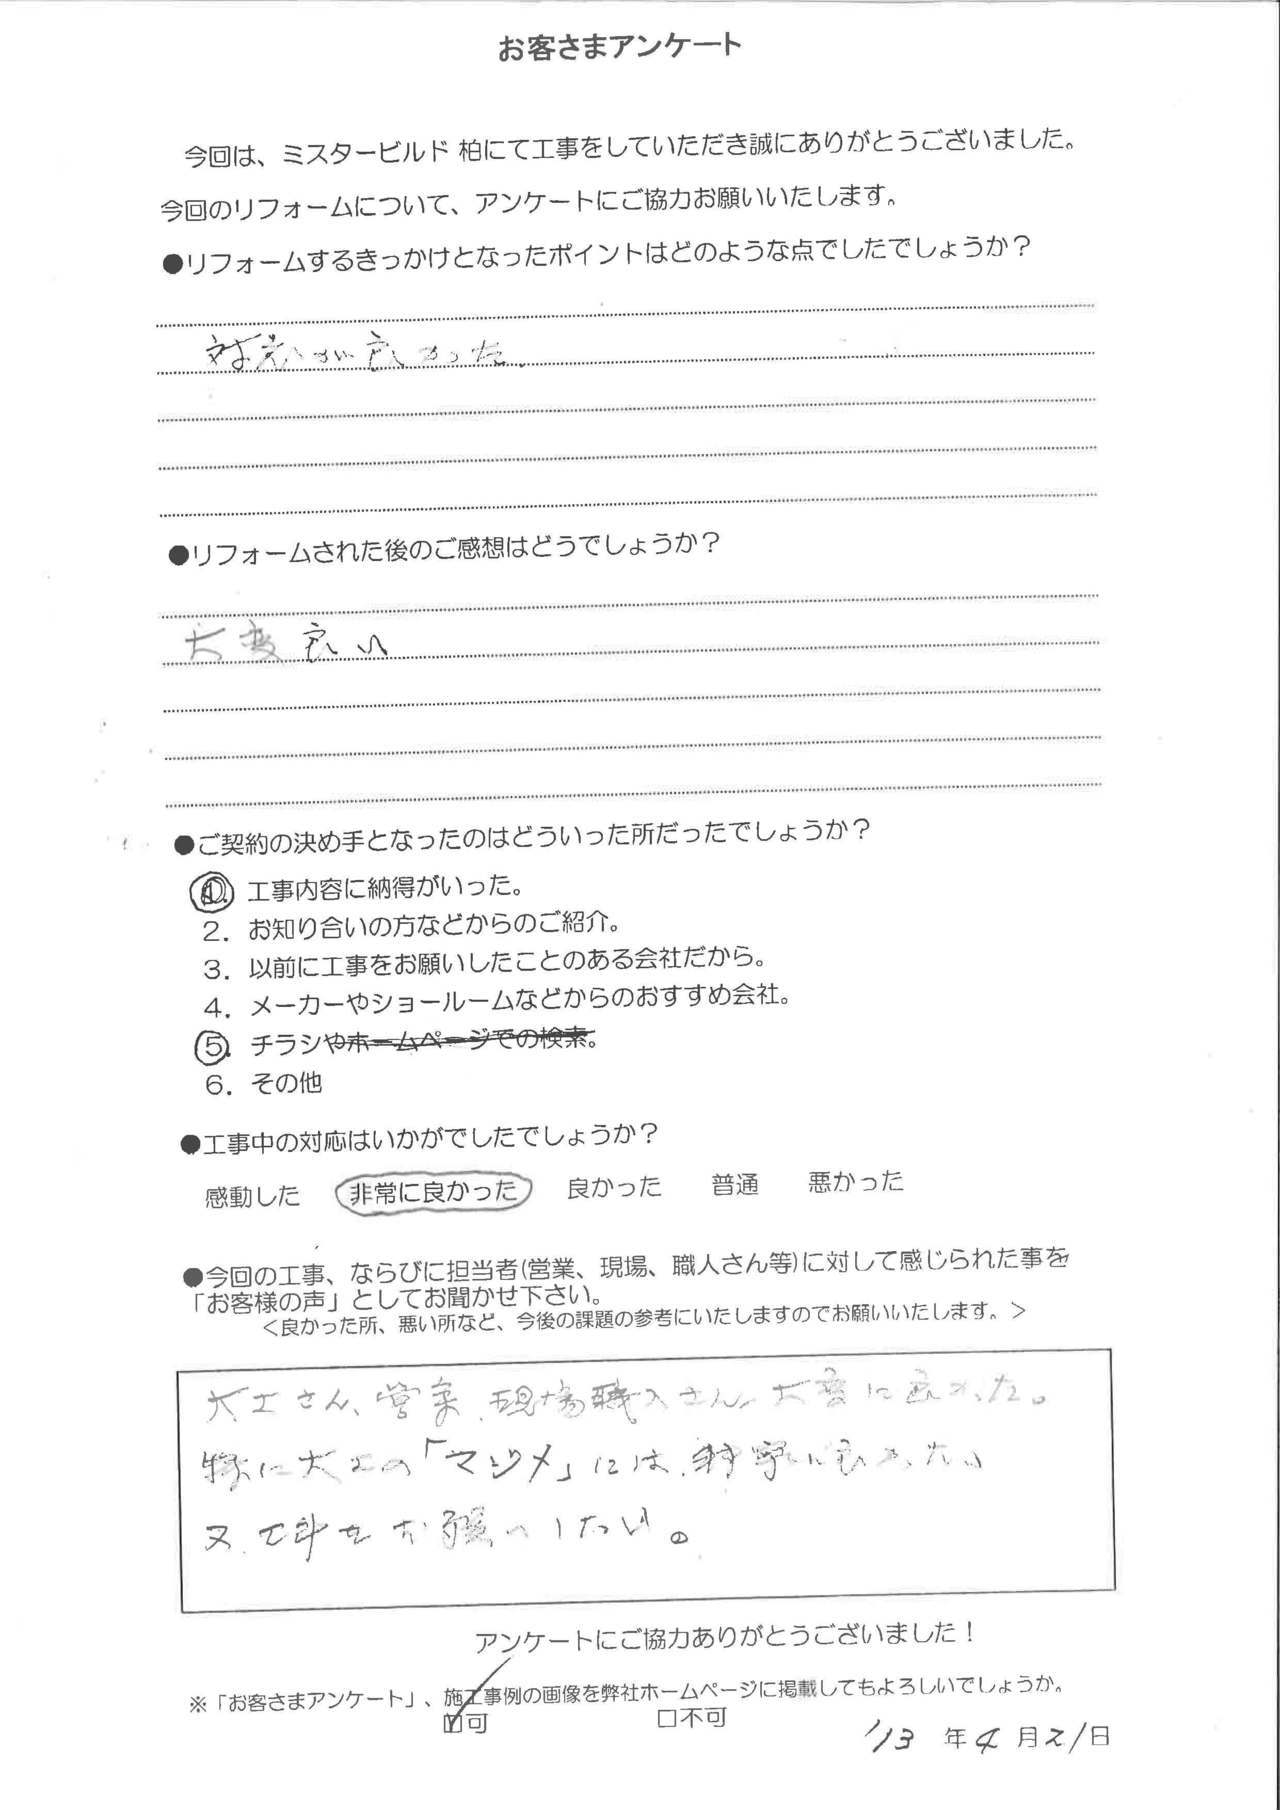 お客さまアンケート
今回は、ミスタービルド 柏にて工事をしていただき誠にありがとうございました。
今回のリフォームについて、アンケートにご協力お願いいたします。
●リフォームするきっかけとなったポイントはどのような点でしたでしょうか？
対応が良かった。
●リフォームされた後のご感想はどうでしょうか？
大変良い
●ご契約の決め手となったのはどういった所だったでしょうか？
1. 工事内容に納得がいった。
2. お知り合いの方などからのご紹介。
3. 以前に工事をお願いしたことのある会社だから。
4. メーカーやショールームなどからのおすすめ会社。
5. チラシやホームページでの検索。
6. その他
●工事中の対応はいかがでしたでしょうか？
感動した 非常に良かった 良かった 普通 悪かった
●今回の工事、ならびに担当者(営業、現場、職人さん等)に対して感じられた事を
「お客様の声」としてお聞かせ下さい。
＜良かった所、悪い所など、今後の課題の参考にいたしますのでお願いいたします。＞
大工さん、営業、現場職人さん、大変に良かった。
特に大工の「マジメ」には、に良かった。
又工事をお願いしたい。
アンケートにご協力ありがとうございました！
※「お客さまアンケート」、施工事例の画像を弊社ホームページに掲載してもよろしいでしょうか。
☑可 □不可
'13 年 4 月 21 日